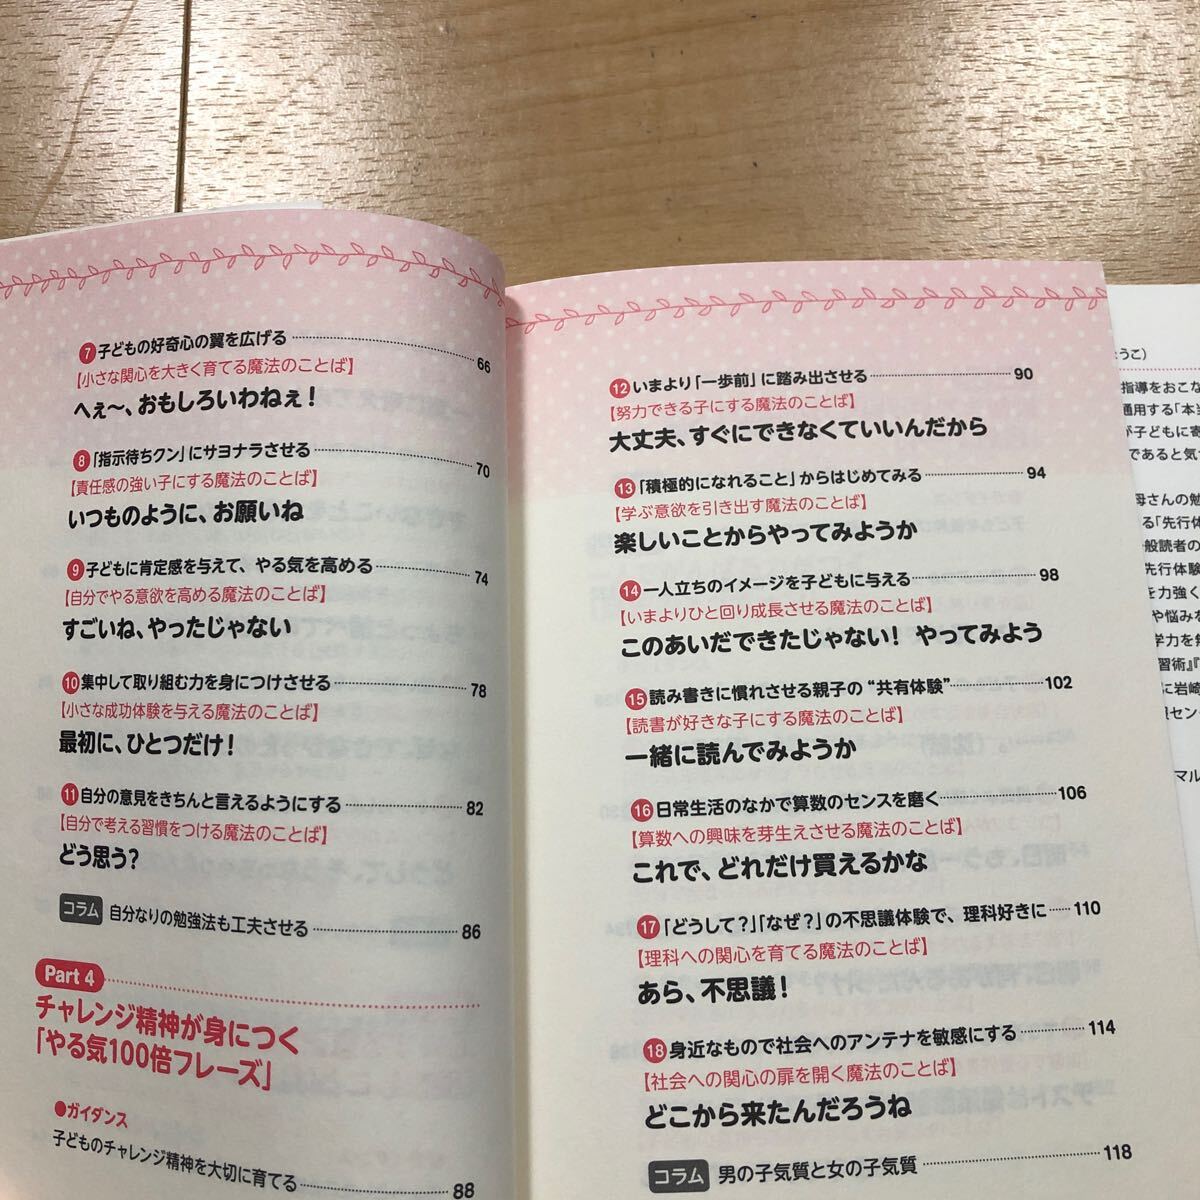 7 子どもの好奇心の翼を広げる 66
【小さな関心を大きく育てる魔法のことば】
へぇ〜、おもしろいわねぇ！
8 「指示待ちクン」にサヨナラさせる 70
【責任感の強い子にする魔法のことば】
いつものように、お願いね
9 子どもに肯定感を与えて、やる気を高める 74
【自分でやる意欲を高める魔法のことば】
すごいね、やったじゃない
10 集中して取り組む力を身につけさせる 78
【小さな成功体験を与える魔法のことば】
最初に、ひとつだけ！
11 自分の意見をきちんと言えるようにする 82
【自分で考える習慣をつける魔法のことば】
どう思う？
コラム 自分なりの勉強法も工夫させる 86
Part 4
チャレンジ精神が身につく
「やる気100倍フレーズ」
●ガイダンス
子どものチャレンジ精神を大切に育てる 88
12 いまより「一歩前」に踏み出させる 90
【努力できる子にする魔法のことば】
大丈夫、すぐにできなくていいんだから
13 「積極的になれること」からはじめてみる 94
【学ぶ意欲を引き出す魔法のことば】
楽しいことからやってみようか
14 一人立ちのイメージを子どもに与える 98
【いまよりひと回り成長させる魔法のことば】
このあいだできたじゃない！ やってみよう
15 読み書きに慣れさせる親子の“共有体験” 102
【読書が好きな子にする魔法のことば】
一緒に読んでみようか
16 日常生活のなかで算数のセンスを磨く 106
【算数への興味を芽生えさせる魔法のことば】
これで、どれだけ買えるかな
17 「どうして？」「なぜ？」の不思議体験で、理科好きに 110
【理科への関心を育てる魔法のことば】
あら、不思議！
18 身近なもので社会へのアンテナを敏感にする 114
【社会への関心の扉を開く魔法のことば】
どこから来たんだろうね
コラム 男の子気質と女の子気質 118
ようこ）
指導をおこな
通用する「本当
が子どもに寄
であると気
母さんの勉
る「先行体
一般読者の
先行体験
を力強く
や悩みる
学力を無
習術』『
に岩崎
センタ
マル